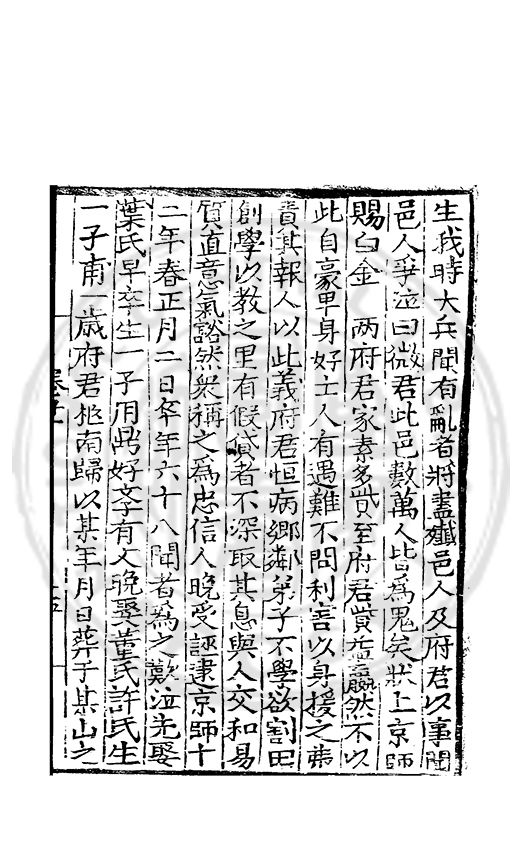 生我時大兵聞有亂者將盡殲邑人及府君以事聞
邑人爭泣曰微君此邑數萬人皆為鬼矣狀上京師
賜白金 兩府君家素多貲至府君貲益羸然不以
此自豪甲身好士人有遇難不問利害以身援之弗
責其報人以此義府君恒病鄉鄰弟子不學欲割田
創學以教之里有假貸者不深取其息與人交和易
質直意氣豁然衆稱之為忠信人晚受誣逮京師十
二年春正月二日卒年六十八聞者為之歎泣先娶
葉氏早卒生一子用鼎好文字有父晚娶董氏許氏生
一子甫一歲府君柩南歸以某年月日葬于某山之